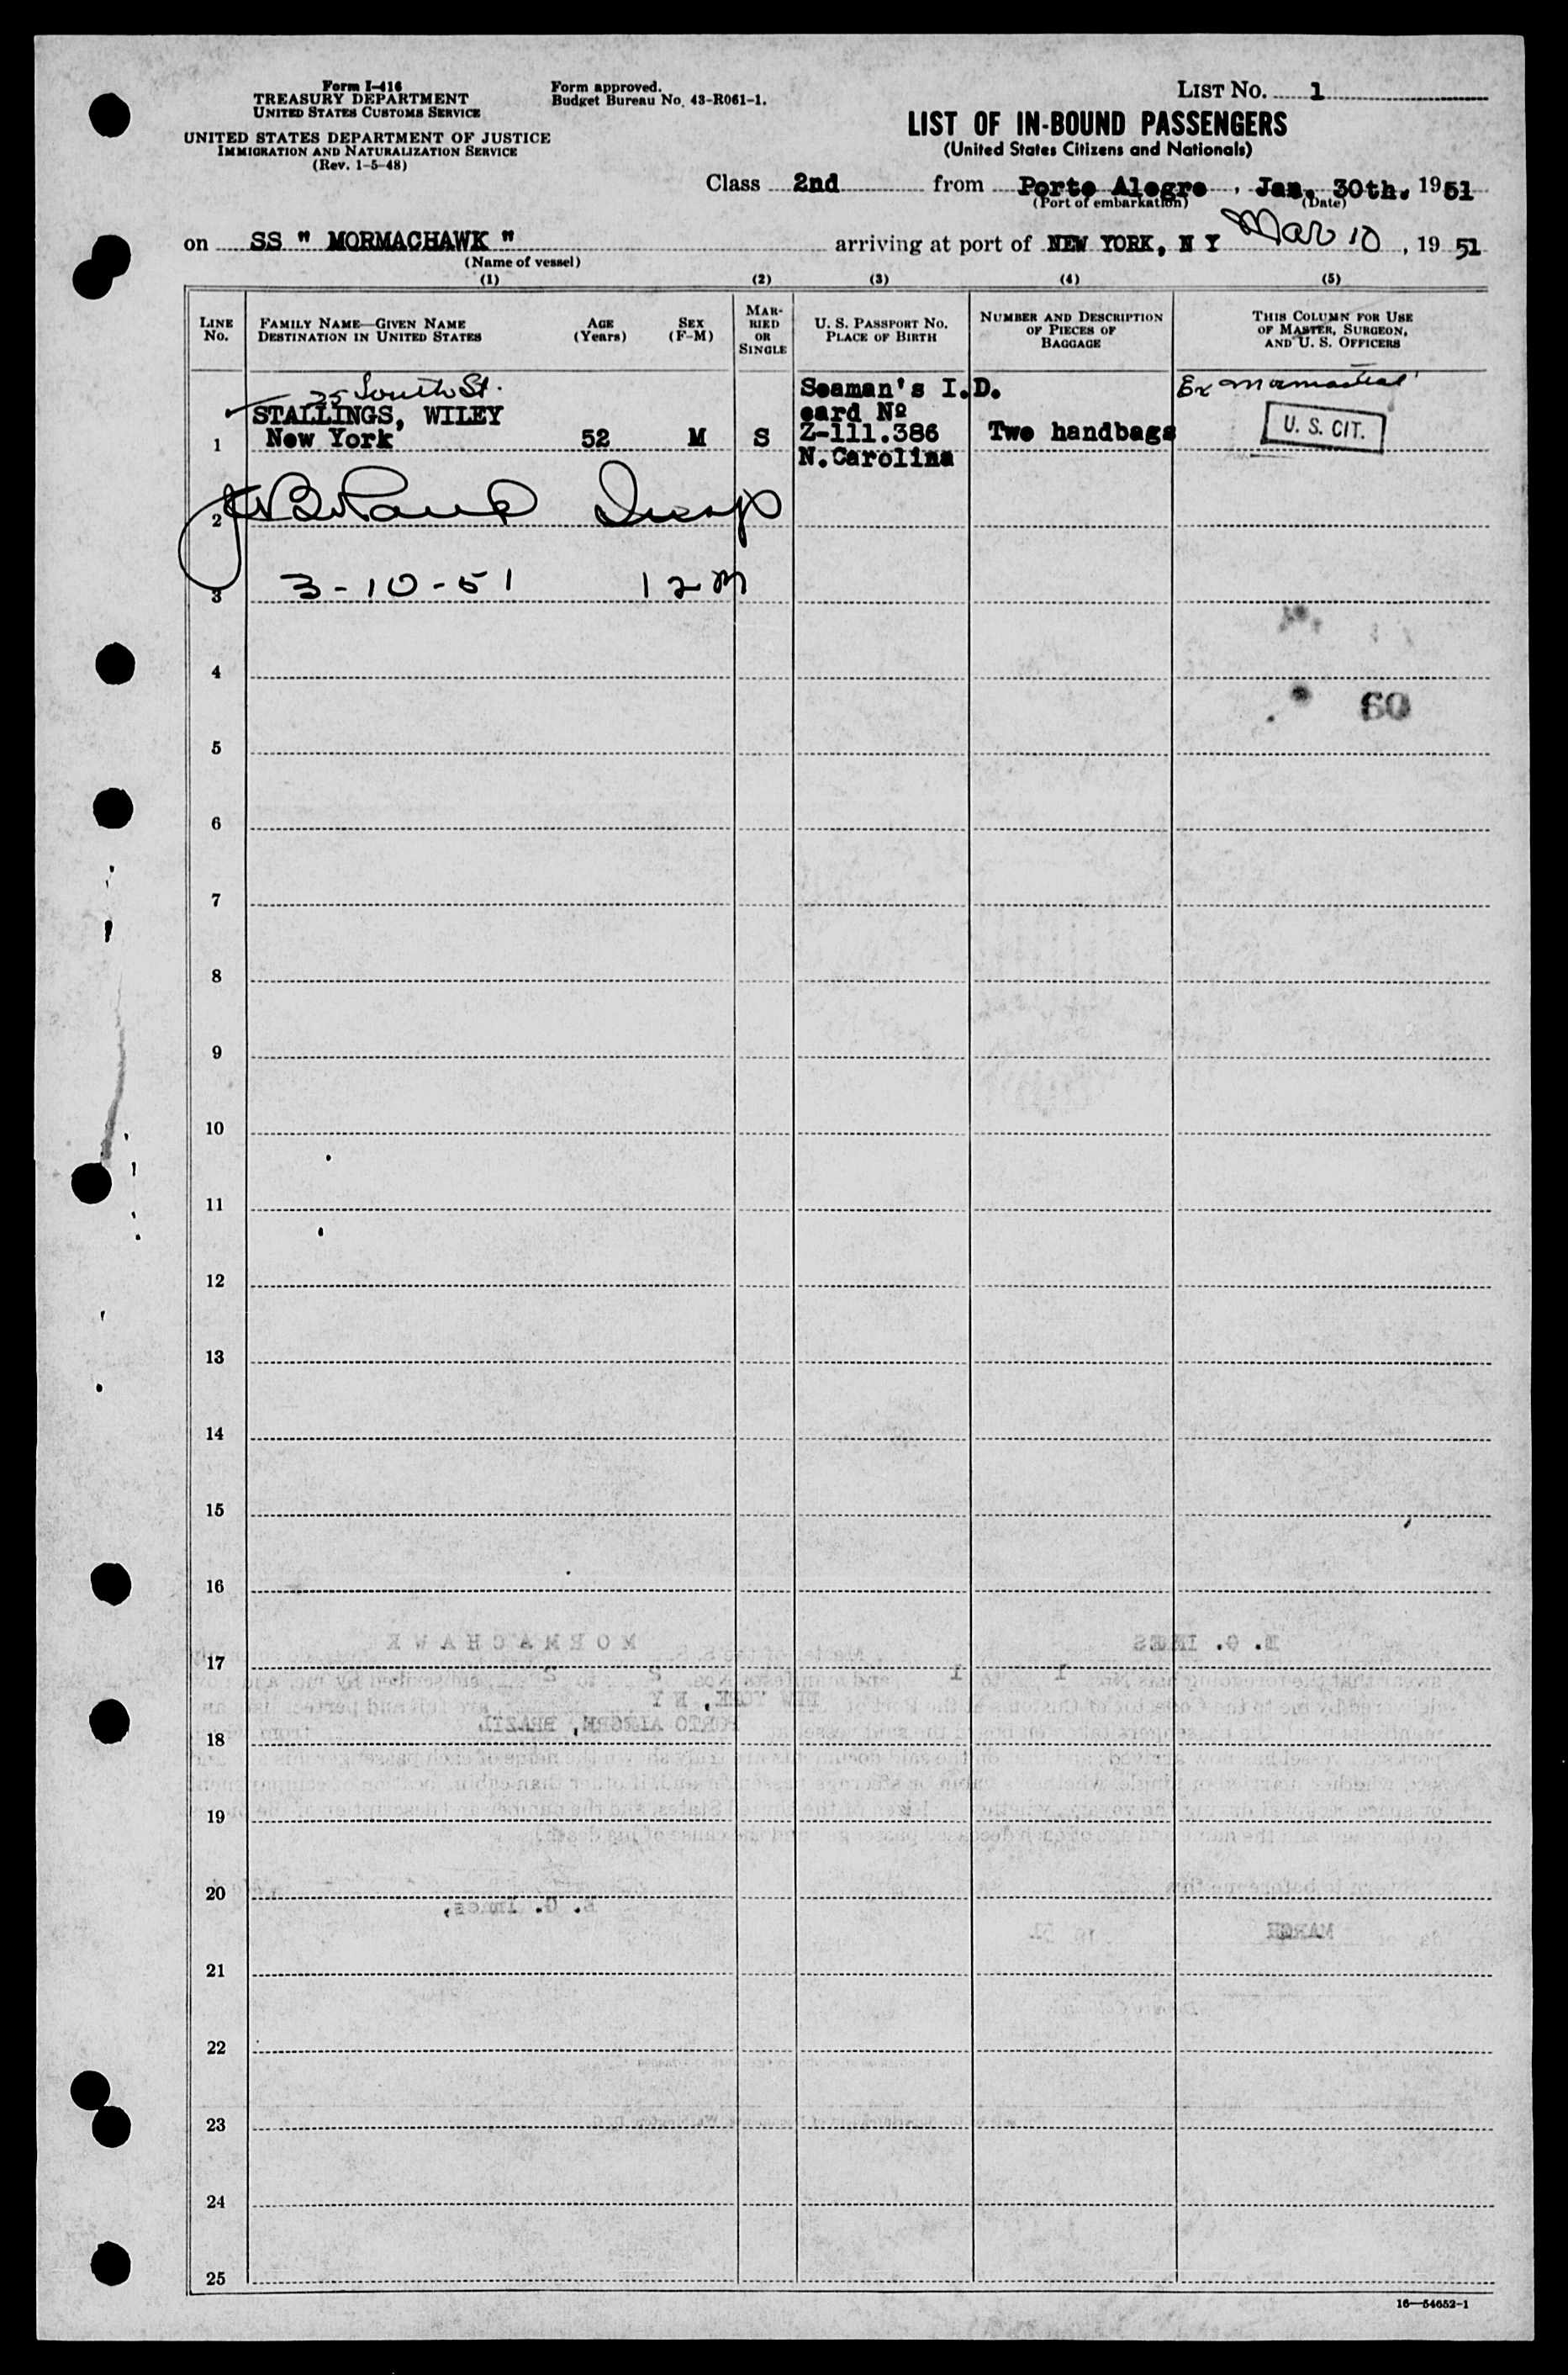 Form I-416
TREASURY DEPARTMENT
UNITED STATES CUSTOMS SERVICE
UNITED STATES DEPARTMENT OF JUSTICE
IMMIGRATION AND NATURALIZATION SERVICE
(Rev. 1-5-48)
Form approved.
Budget Bureau No. 43-R061-1.
LIST No. 1
LIST OF IN-BOUND PASSENGERS
(United States Citizens and Nationals)
Class 2nd from Porto Alegre, Jan. 30th. 1951
(Port of embarkation) (Date)
on SS " MORMACHAWK " arriving at port of NEW YORK, N Y Mar 10, 19 51
(Name of vessel)
(1) (2) (3) (4) (5)
LINE No.
FAMILY NAME—GIVEN NAME
DESTINATION IN UNITED STATES
AGE (Years)
SEX (F-M)
MARRIED OR SINGLE
U. S. PASSPORT No.
PLACE OF BIRTH
NUMBER AND DESCRIPTION
OF PIECES OF
BAGGAGE
THIS COLUMN FOR USE
OF MASTER, SURGEON,
AND U. S. OFFICERS
25 South St.
STALLINGS, WILEY
1 New York 52 M S
Seaman's I.D.
card Nº
Z-111.386
N.Carolina
Two handbags
Ex
U. S. CIT.
2
3 3-10-51 12 M
4
60
5
6
7
8
9
10
11
12
13
14
15
16
17
18
19
20
21
22
23
24
25
16—54652-1